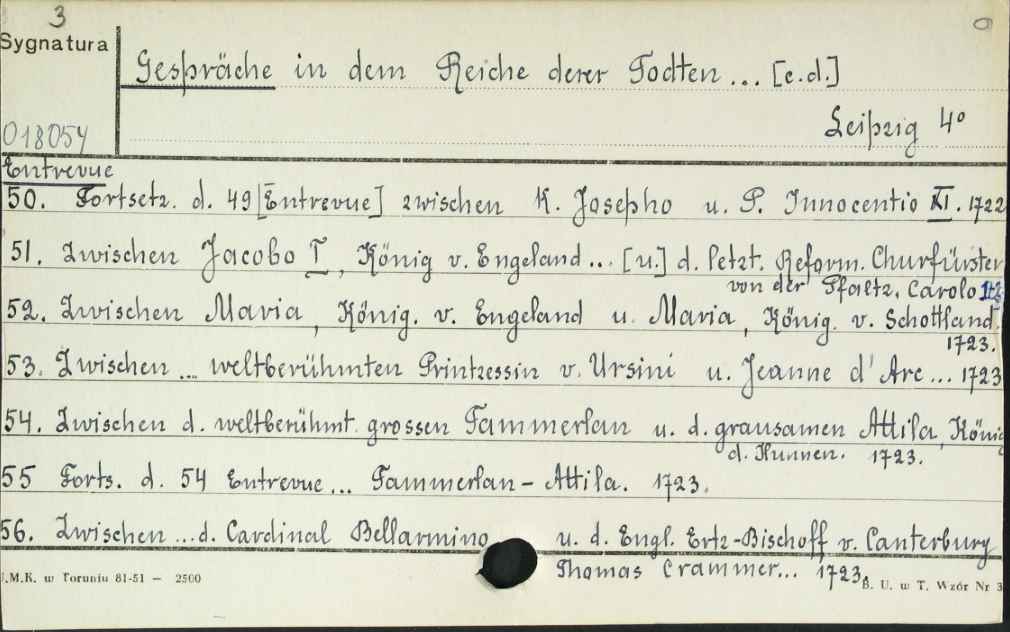 3
Sygnatura
Gespräche in dem Reiche derer Todten... [c.d.]
Leipzig 4°
018054
Entrevue
50. Fortsetz. d. 49 [Entrevue] zwischen K. Josepho u. P. Innocentio XI. 1722
51. Zwischen Jacobo I, König v. Engeland... [u.] d. letzt. Reform. Churfürsten
von der Pfaltz. Carolo
52. Zwischen Maria, König. v. Engeland u. Maria, König. v. Schottland.
1723.
53. Zwischen ... weltberühmten Printzessin v. Ursini u. Jeanne d'Arc... 1723
54. Zwischen d. weltberühmt. grossen Tammerlan u. d. grausamen Attila, König
d. Hunnen. 1723.
55 Forts. d. 54 Entrevue... Tammerlan - Attila. 1723.
56. Zwischen ...d. Cardinal Bellarmino u. d. Engl. Ertz-Bischoff v. Canterbury
Thomas Crammer... 1723.
U.M.K. w Toruniu 81-51 — 2500
B. U. w T. Wzór Nr 3